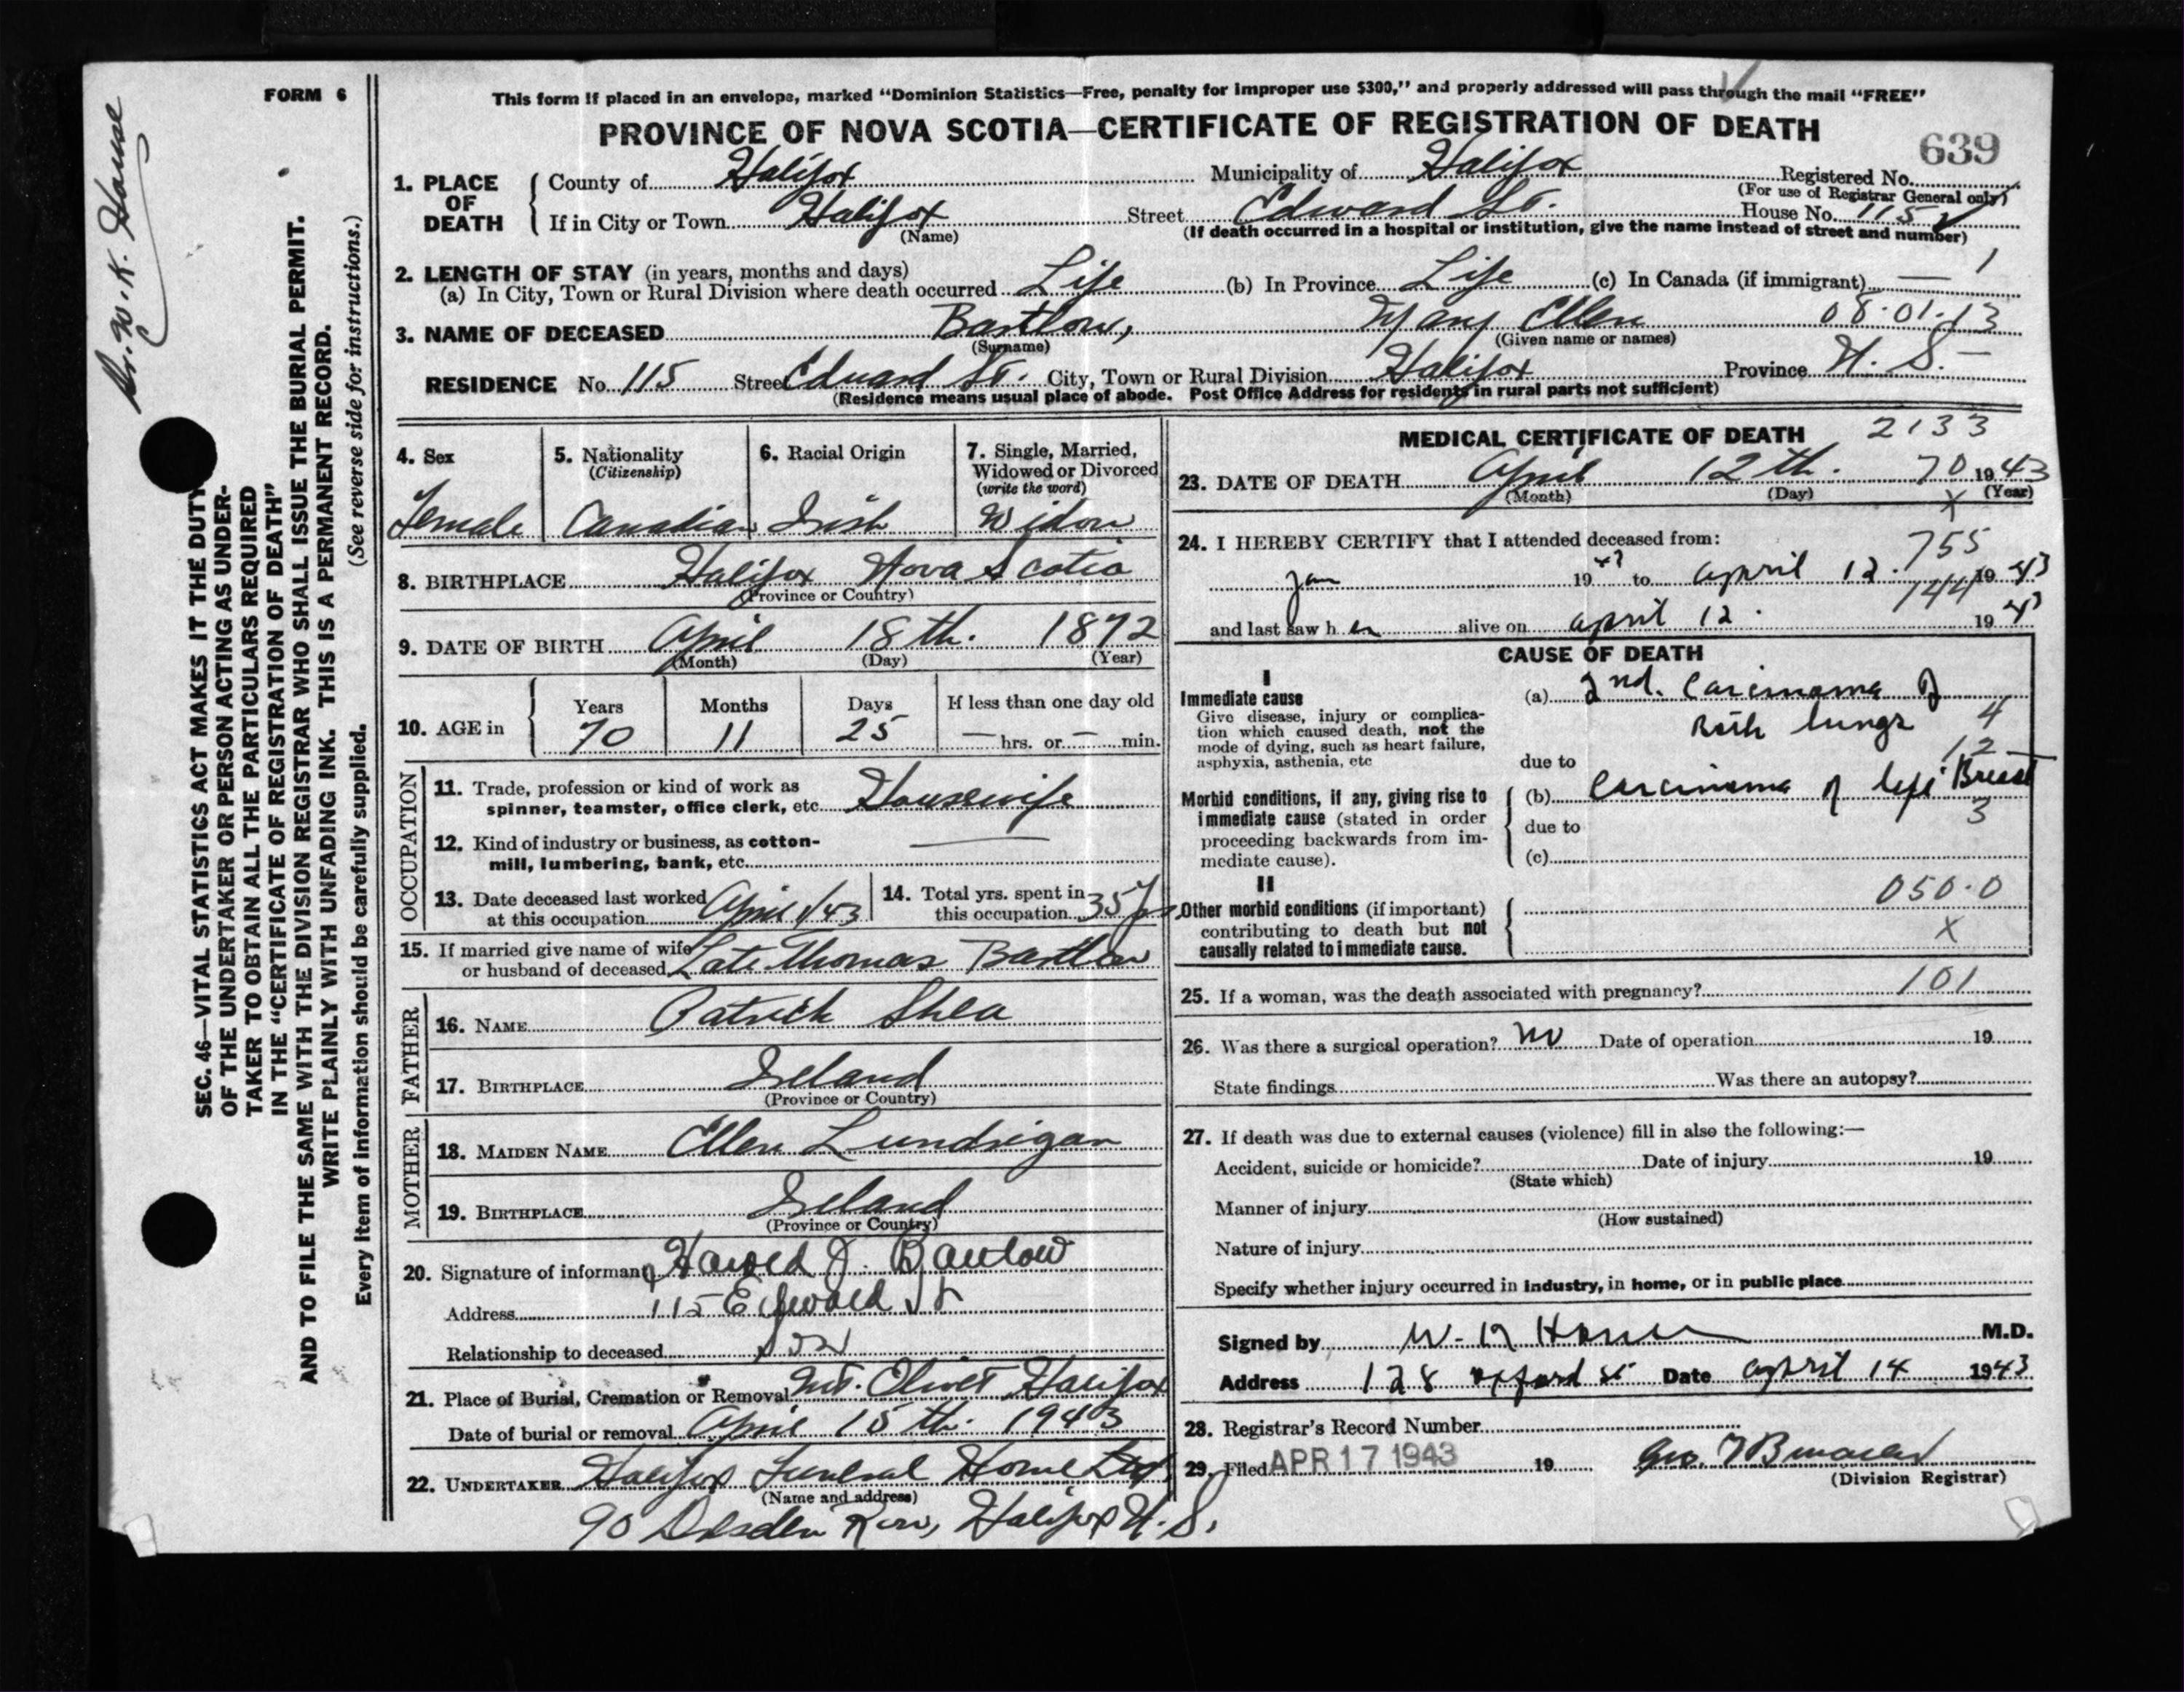 FORM 6
Dr. W. K. House
SEC. 46—VITAL STATISTICS ACT MAKES IT THE DUTY
OF THE UNDERTAKER OR PERSON ACTING AS UNDER-
TAKER TO OBTAIN ALL THE PARTICULARS REQUIRED
IN THE "CERTIFICATE OF REGISTRATION OF DEATH"
AND TO FILE THE SAME WITH THE DIVISION REGISTRAR WHO SHALL ISSUE THE BURIAL PERMIT.
WRITE PLAINLY WITH UNFADING INK. THIS IS A PERMANENT RECORD.
Every item of information should be carefully supplied. (See reverse side for instructions.)
This form if placed in an envelope, marked "Dominion Statistics—Free, penalty for improper use $300," and properly addressed will pass through the mail "FREE"
PROVINCE OF NOVA SCOTIA—CERTIFICATE OF REGISTRATION OF DEATH
639
1. PLACE OF DEATH County of Halifax Municipality of Halifax Registered No.
(For use of Registrar General only)
If in City or Town Halifax Street Edward St. House No. 115
(Name) (If death occurred in a hospital or institution, give the name instead of street and number)
2. LENGTH OF STAY (in years, months and days)
(a) In City, Town or Rural Division where death occurred Life (b) In Province Life (c) In Canada (if immigrant) — 1
3. NAME OF DECEASED Bartlow, Mary Ellen 08·01·13
(Surname) (Given name or names)
RESIDENCE No. 115 Street Edward St. City, Town or Rural Division Halifax Province N. S. —
(Residence means usual place of abode. Post Office Address for residents in rural parts not sufficient)
4. Sex 5. Nationality (Citizenship) 6. Racial Origin 7. Single, Married, Widowed or Divorced (write the word)
Female Canadian Irish Widow
8. BIRTHPLACE Halifax Nova Scotia
(Province or Country)
9. DATE OF BIRTH April 18th. 1872
(Month) (Day) (Year)
10. AGE in Years Months Days If less than one day old
70 11 25 — hrs. or — min.
OCCUPATION
11. Trade, profession or kind of work as
spinner, teamster, office clerk, etc. Housewife
12. Kind of industry or business, as cotton-
mill, lumbering, bank, etc. —
13. Date deceased last worked at this occupation April 1/43 14. Total yrs. spent in this occupation 35 yrs
15. If married give name of wife
or husband of deceased Late Thomas Bartlow
FATHER
16. NAME Patrick Shea
17. BIRTHPLACE Ireland
(Province or Country)
MOTHER
18. MAIDEN NAME Ellen Lundrigan
19. BIRTHPLACE Ireland
(Province or Country)
20. Signature of informant Harold J. Bartlow
Address 115 Edward St
Relationship to deceased Son
21. Place of Burial, Cremation or Removal Mt. Olivet Halifax
Date of burial or removal April 15th. 1943
22. UNDERTAKER Halifax Funeral Home Ltd
(Name and address)
90 Dresden Row, Halifax N. S.
MEDICAL CERTIFICATE OF DEATH 2133
23. DATE OF DEATH April 12th. 70 1943
(Month) (Day) X (Year)
24. I HEREBY CERTIFY that I attended deceased from: 755
Jan 1943 to April 12. 1943
144
and last saw her alive on April 12. 1943
CAUSE OF DEATH
I
Immediate cause
Give disease, injury or complica-
tion which caused death, not the
mode of dying, such as heart failure,
asphyxia, asthenia, etc
(a) 2nd. Carcinoma of
Both lungs 4
12
due to
Morbid conditions, if any, giving rise to
immediate cause (stated in order
proceeding backwards from im-
mediate cause).
(b) Carcinoma of left Breast
due to 3
(c)
II
Other morbid conditions (if important)
contributing to death but not
causally related to immediate cause.
050·0
X
25. If a woman, was the death associated with pregnancy? 101
26. Was there a surgical operation? no Date of operation 19
State findings Was there an autopsy?
27. If death was due to external causes (violence) fill in also the following:—
Accident, suicide or homicide? Date of injury 19
(State which)
Manner of injury
(How sustained)
Nature of injury
Specify whether injury occurred in industry, in home, or in public place
Signed by W. K House M.D.
Address 128 Oxford St Date April 14 1943
28. Registrar's Record Number
29. Filed APR 17 1943 19 Geo.
(Division Registrar)